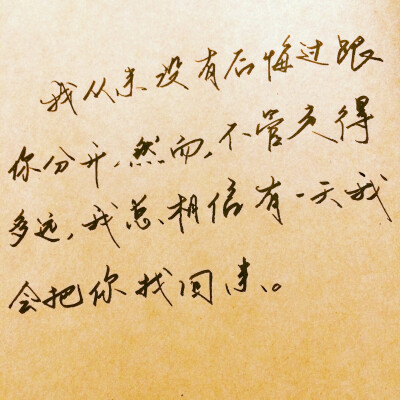 我从来没有后悔过跟
你分开，然而，不管走得
多远，我总相信有一天我
会把你找回来。